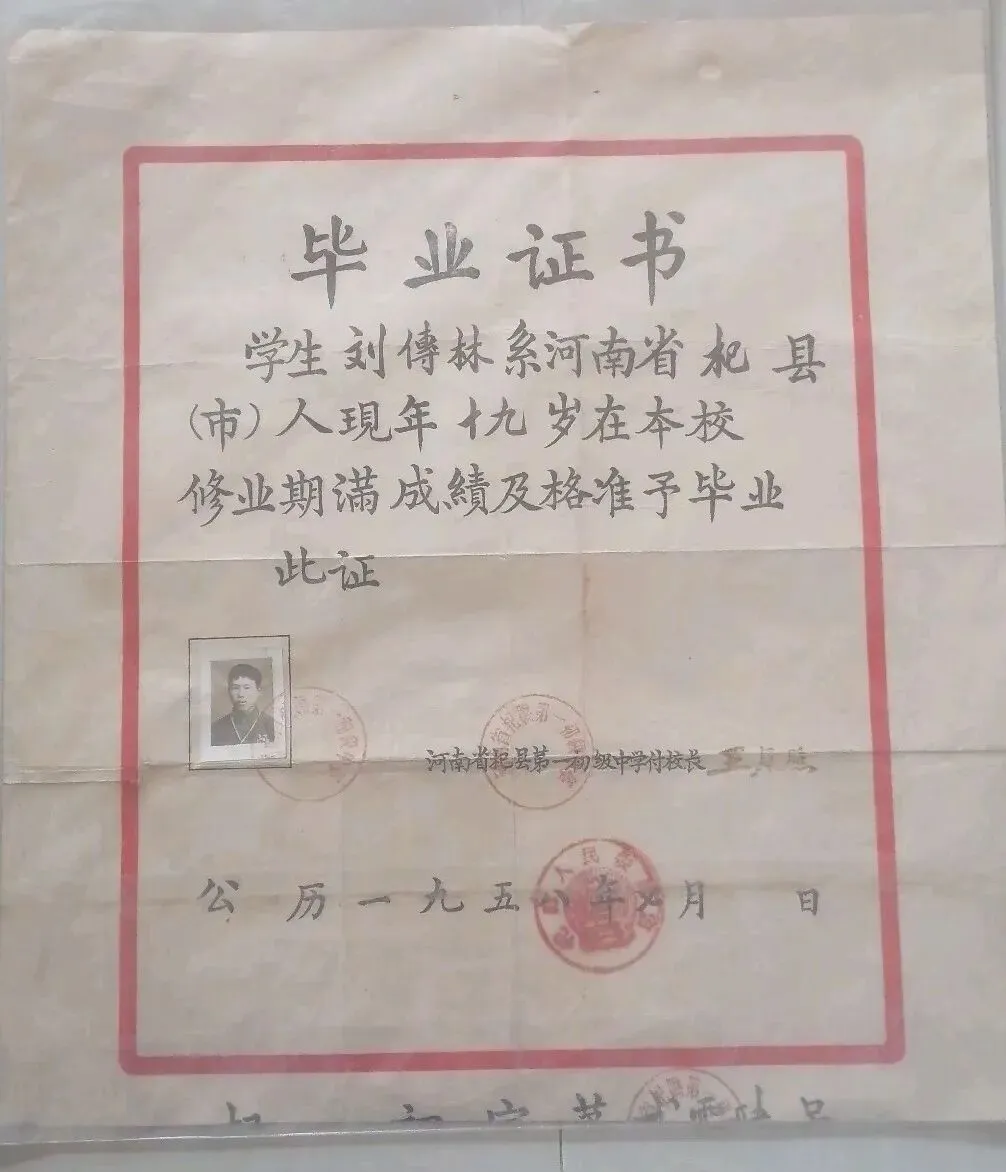 毕业证书
学生刘傳林系河南省杞县
(市)人現年十九岁在本校
修业期滿成績及格准予毕业
此证
河南省杞县第一初级中学付校长
公历一九五八年七月 日